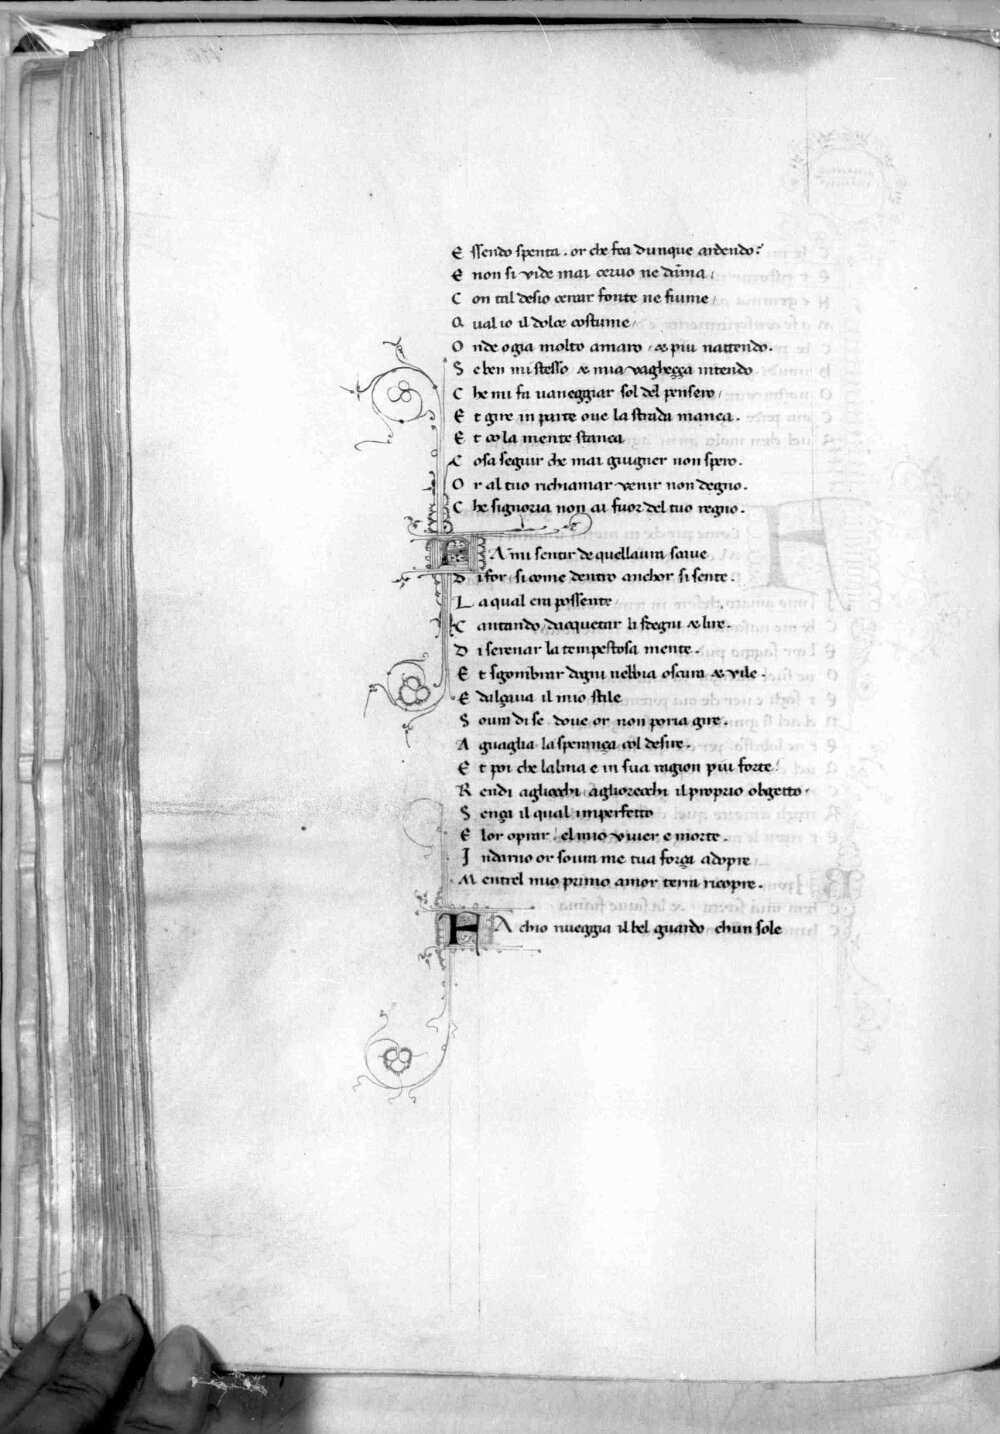 E ssendo spenta. or che fea dunque ardendo?
E non si vide mai ceruo ne dãma /
C on tal desio cercar fonte ne fiume /
Q ual io il dolce costume /
O nde o gia molto amaro / & piu nattendo.
S e ben mi stesso & mia vaghecça intendo
C he mi fa uaneggiar sol del pensero /
E t gire in parte oue la strada manca.
E t co la mente stanca
C osa seguir che mai giugner non spero.
O r al tuo richiamar venir non degno.
C he signoria non ai fuor del tuo regno.
F A mi sentir de quellaura soaue
D i for / si come dentro anchor si sente.
L a qual era possente /
C antando / dacquetar li sdegni & lire.
D i serenar la tempestosa mente.
E t sgombrar dogni nebbia oscura & vile.
E dalçaua il mio stile
S oura di se / doue or non poria gire.
A guaglia la sperança col desire.
E t poi che lalma e in sua ragion piu forte /
R endi agliocchi agliorecchi il proprio obgetto.
S ença il qual imperfetto
E lor oprar / el mio viuer e morte.
I ndarno or soura me tua força adopre /
M entrel mio primo amor terra ricopre.
F A chio riueggia il bel guardo chun sole